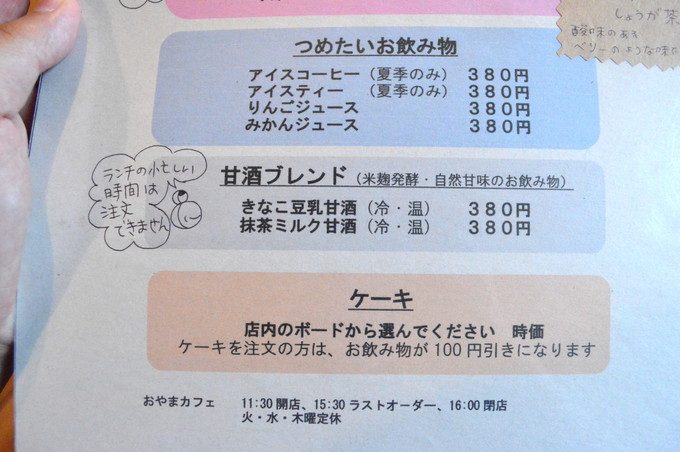 しょうが茶
酸味のある
ベリーのような味わ
つめたいお飲み物
アイスコーヒー（夏季のみ） ３８０円
アイスティー （夏季のみ） ３８０円
りんごジュース ３８０円
みかんジュース ３８０円
ランチの忙しい
時間は
注文
できません
甘酒ブレンド（米麹発酵・自然甘味のお飲み物）
きなこ豆乳甘酒（冷・温） ３８０円
抹茶ミルク甘酒（冷・温） ３８０円
ケーキ
店内のボードから選んでください 時価
ケーキを注文の方は、お飲み物が100円引きになります
おやまカフェ 11:30開店、15:30ラストオーダー、16:00閉店
火・水・木曜定休